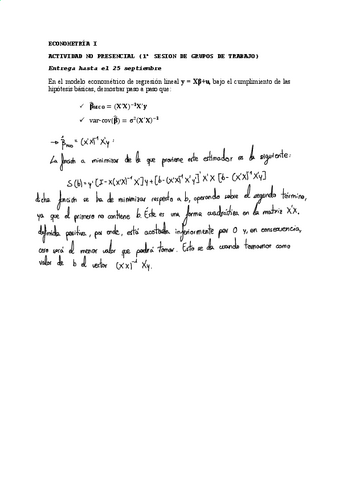 ECONOMETRÍA I
ACTIVIDAD NO PRESENCIAL (1ª SESION DE GRUPOS DE TRABAJO)
Entrega hasta el 25 septiembre
En el modelo econométrico de regresión lineal y = Xβ+u, bajo el cumplimiento de las
hipótesis básicas, demostrar paso a paso que:
✓ β̂MCO = (X'X)⁻¹X'y
✓ var-cov(β̂) = σ²(X'X)⁻¹
→ β̂MCO = (X'X)⁻¹ X'y :
La función a minimizar de la que proviene este estimador es la siguiente:
S(b) = y'[I - X(X'X)⁻¹ X']y + [b - (X'X)⁻¹ X'y]' X'X [b - (X'X)⁻¹ X'y]
dicha función se ha de minimizar respecto a b, operando sobre el segundo término,
ya que el primero no contiene b. Este es una forma cuadrática en la matriz X'X,
definida positiva, por ende, está acotada inferiormente por 0 y, en consecuencia,
cero será el menor valor que podrá tomar. Esto se da cuando tomamos como
valor de b el vector (X'X)⁻¹ X'y.